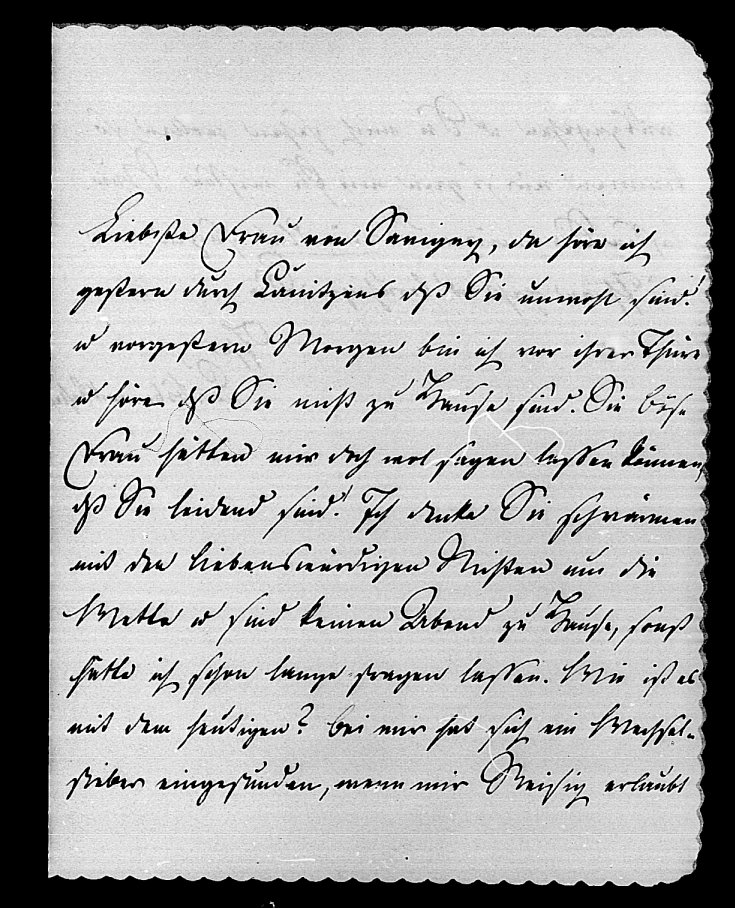 Liebste Frau von Savigny, da höre ich
gestern durch Canitzens dß Sie unwohl sind!
u vorgestern Morgen bin ich vor ihrer Thüre
u höre dß Sie nicht zu Hause sind. Sie böse
Frau hätten mir doch wol sagen lassen können,
dß Sie leidend sind! Ich denke Sie schwärmen
mit den liebenswürdigen Nichten um die
Wette u sind keinen Abend zu Hause, sonst
hätte ich schon lange fragen lassen. Wie ist es
mit dem heutigen? bei mir hat sich ein Wechsel-
fieber eingefunden, wenn mir erlaubt